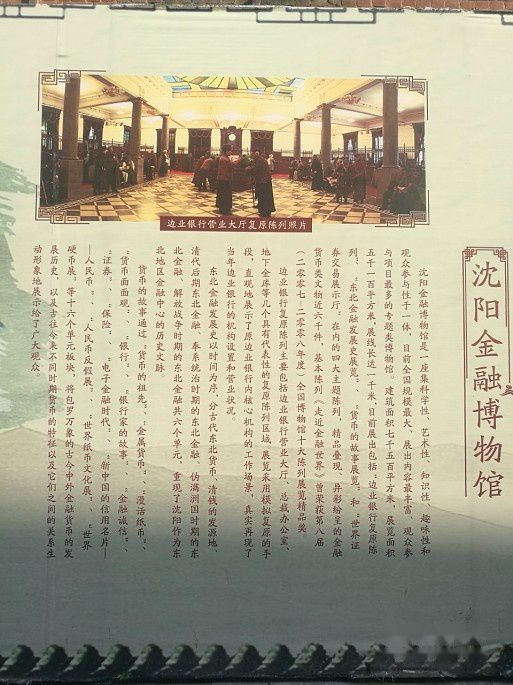 沈阳金融博物馆
边业银行营业大厅复原陈列照片
沈阳金融博物馆是一座集科学性、艺术性、知识性、趣味性和
观众参与性于一体，目前全国规模最大、展出内容最丰富、观众参
与项目最多的专题类博物馆。建筑面积七千五百平方米，展览面积
五千一百平方米，展线长达一千米，目前展出包括：边业银行复原陈
列；、东北金融发展史展览；、货币的故事展览；、和世界证
券交易展示厅。在内的四大主题陈列，精品叠现，异彩纷呈的金融
货币类文物近六千件，基本陈列《走近金融世界》曾荣获第八届
（二零零七—二零零八年度）全国博物馆十大陈列展览精品奖
边业银行复原陈列主要包括边业银行营业大厅、总裁办公室、
地下金库等几个具有代表性的复原陈列区域，展览采用模拟复原的手
段，直观地展示了原边业银行内核心机构的工作场景，真实再现了
当年边业银行的机构设置和营业状况。
东北金融发展史以时间为序，分古代东北货币、清钱的发源地、
清代后期东北金融、奉系统治时期的东北金融、伪满洲国时期的东
北金融、解放战争时期的东北金融共六个单元，重现了沈阳作为东
北地区金融中心的历史文脉。
货币的故事通过：货币的祖先；、金属货币；、漫话纸币；、
货币面面观；、银行；、银行家的故事；、金融诚信；、
证券；、保险；、电子金融时代；、新中国的信用名片—
—人民币；、人民币反假展；、世界纸币文化展；、世界
硬币展，等十六个单元板块，将包罗万象的古今中外金融货币的发
展历史，以及古往今来不同时期货币的特征以及它们之间的关系生
动形象地展示给了广大观众。